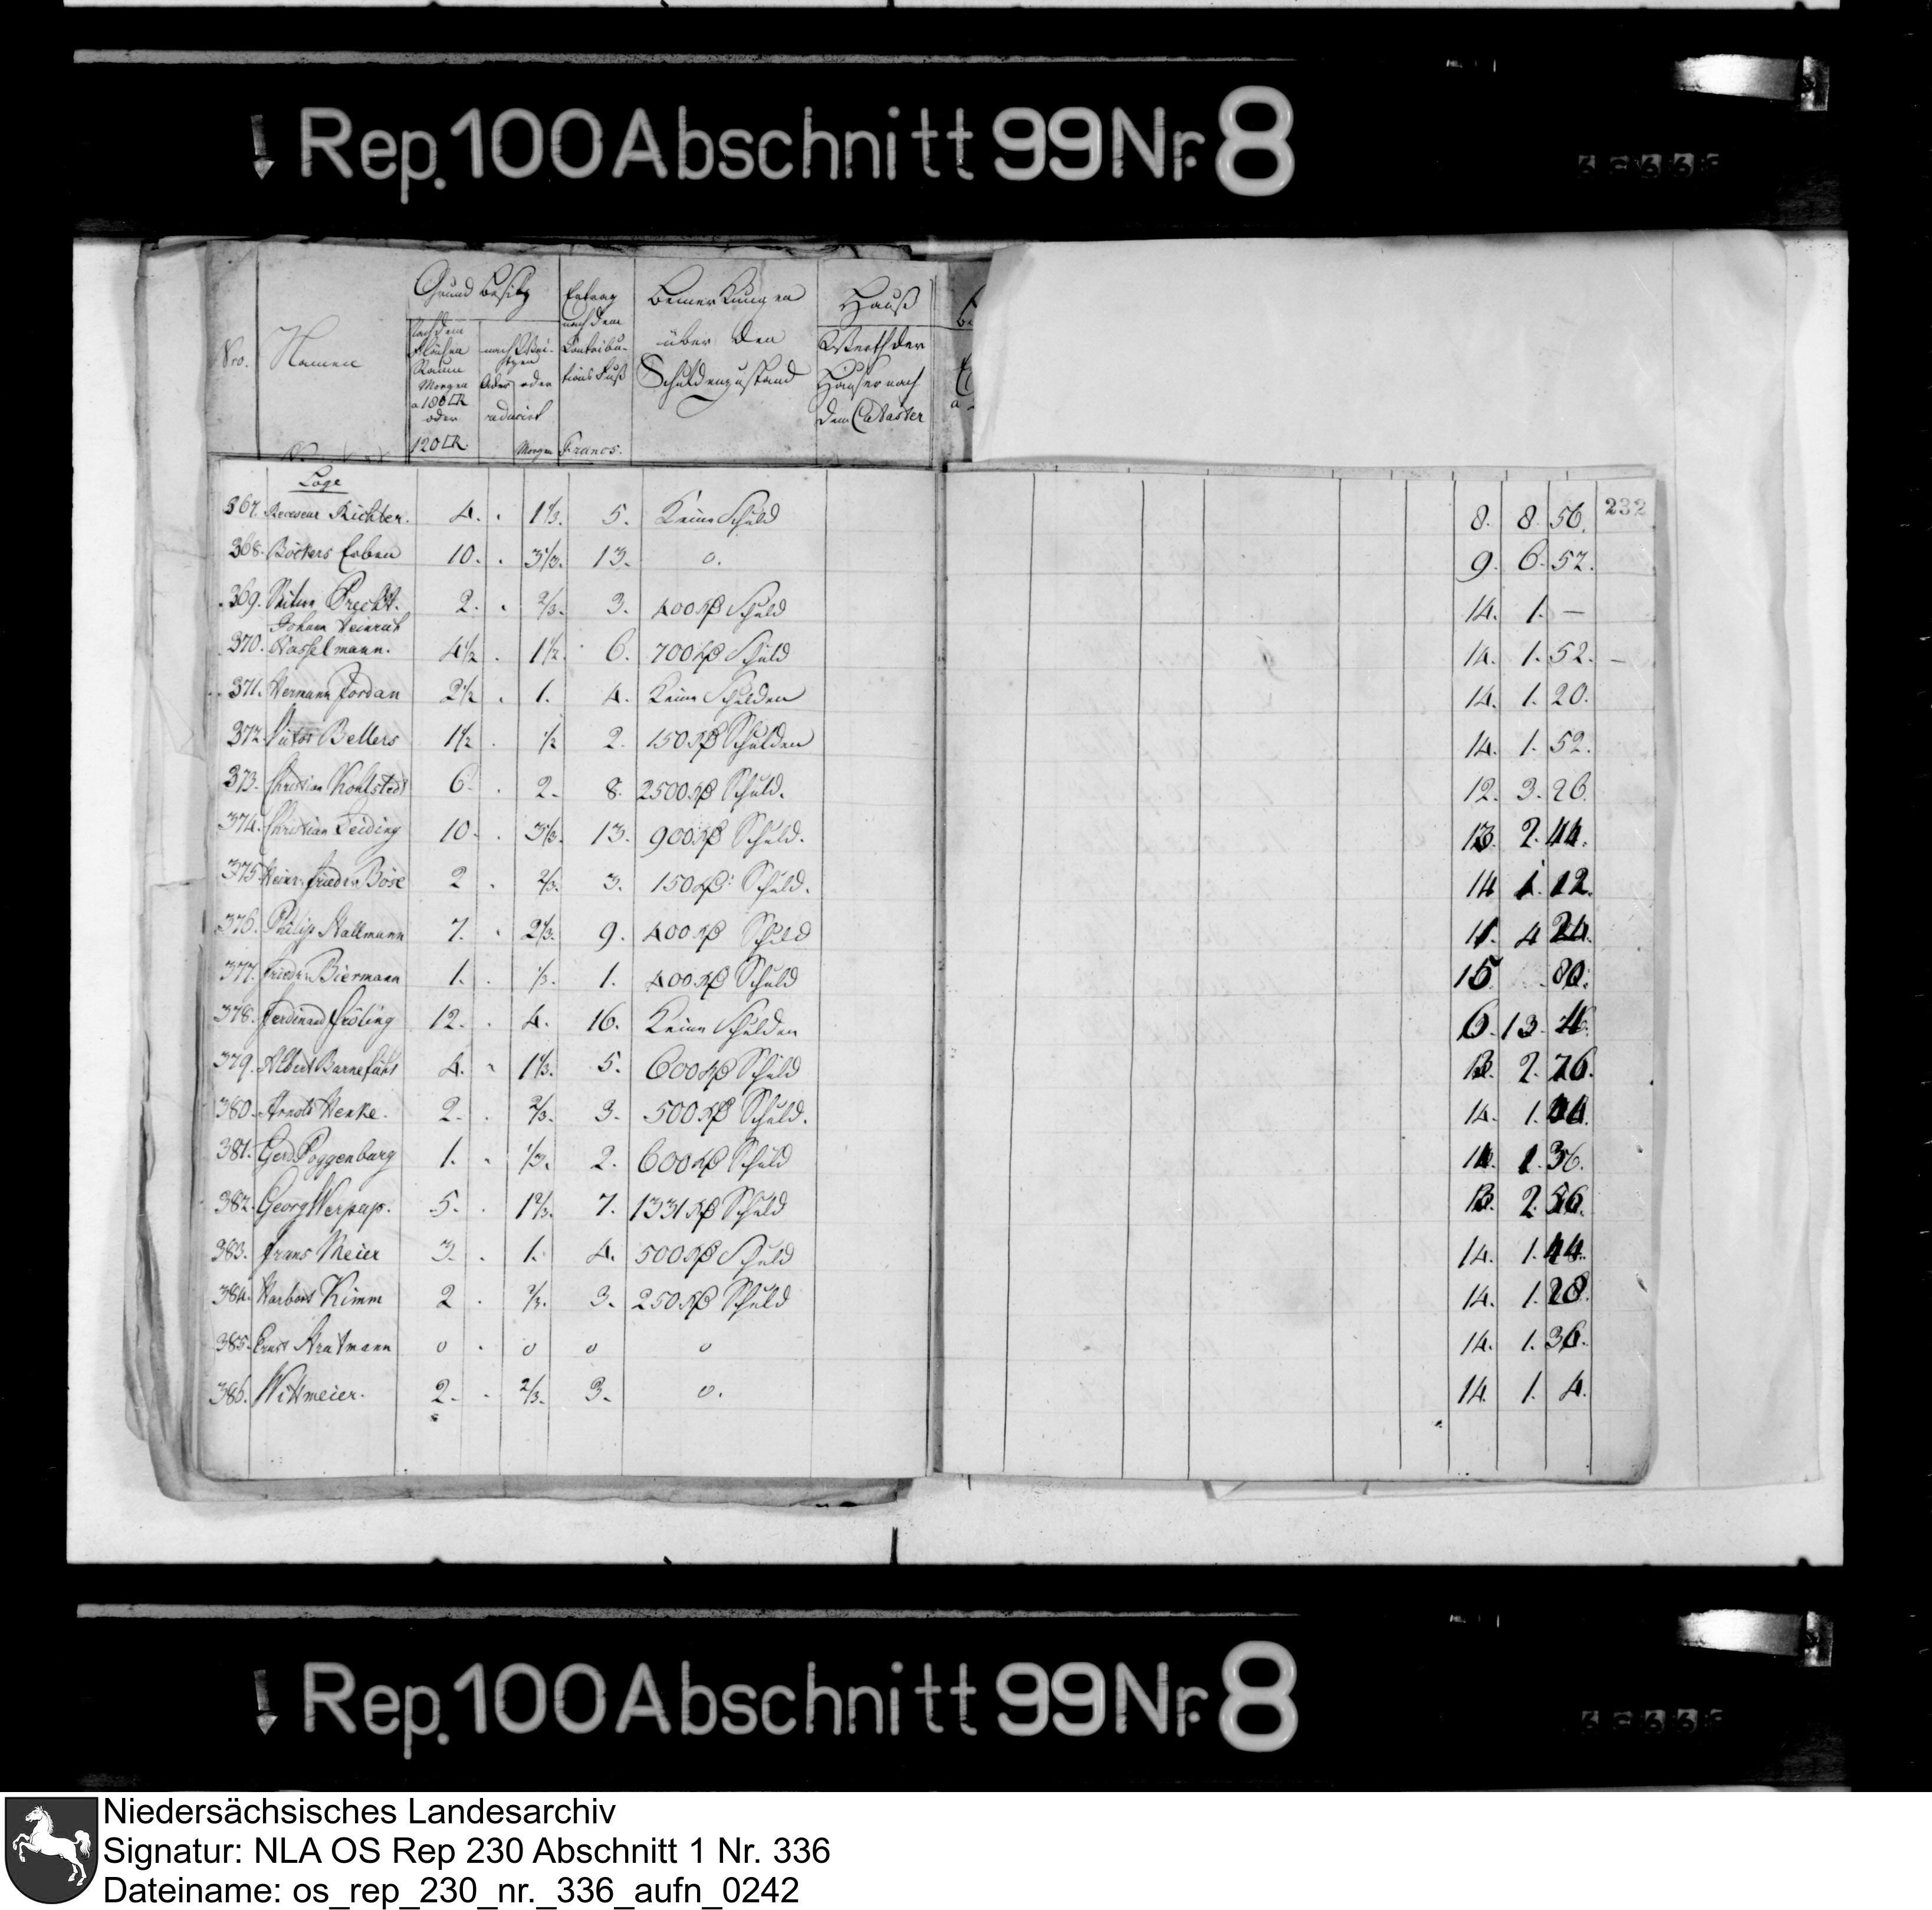 Rep. 100 Abschnitt 99 Nr. 8
Nro. Namen Grund besitz Ertrag nach dem Contribu- tions Fuß Francs. Bemerkungen über den Schuldenzustand Hauß Werth der Häuser nach dem Cataster
nach dem Flächen Raum Morgen a 180 □R oder 120 □R. oder reducirt Morgen
Loge
367. Receveur Richter. 4. . 1 1/3. 5. Keine Schuld 8. 8. 56. 232
368. Böckers Erben 10. . 3 1/3. 13. o. 9. 6. 52.
369. Precht. 2. . 2/3. 3. 400 Schuld 14. 1. —
Johann Heinrich
370. Hasselmann. 4 1/2 . 1 1/2. 6. 700 Schuld 14. 1. 52. —
371. Hermann Jordan 2 1/2 . 1. 4. Keine Schulden 14. 1. 20.
372. Bellers 1 1/2 . 1/2 2. 150 Schulden 14. 1. 52.
373. Christian Kohlstedt 6. . 2. 8. 2500 Schuld. 12. 3. 26.
374. Christian Leiding 10. . 3 1/3. 13. 900 Schuld. 13. 2. 44.
375. Heinr. Friedr. Böse 2 . 2/3. 3. 150 Schuld. 14 1. 12.
376. Philip Hallmann 7. . 2 1/3. 9. 400 Schuld 11. 4 24.
377. Friedr. Biermann 1. . 1/3. 1. 400 Schuld 15 80.
378. Ferdinand Fröling 12. . 4. 16. Keine Schulden 6. 13.
379. Albert Barnefürt 4. . 1 1/3. 5. 600 Schuld 13. 2. 76.
380. Arnold Henke. 2. . 2/3. 3. 500 Schuld. 14. 1.
381. Gerd Poggenburg 1. . 1/3. 2. 600 Schuld 14. 1. 36.
382. Georg Werpup. 5. . 1 2/3. 7. 1331 Schuld 13. 2. 56.
383. Frans Meier 3. . 1. 4. 500 Schuld 14. 1. 44.
384. Harbert Kimm 2 . 2/3. 3. 250 Schuld 14. 1. 28.
385. Ernst Stratmann o . o o o 14. 1. 36.
386. Wittmeier. 2. . 2/3. 3. o. 14. 1. 4.
Rep. 100 Abschnitt 99 Nr. 8
Niedersächsisches Landesarchiv
Signatur: NLA OS Rep 230 Abschnitt 1 Nr. 336
Dateiname: os_rep_230_nr._336_aufn_0242